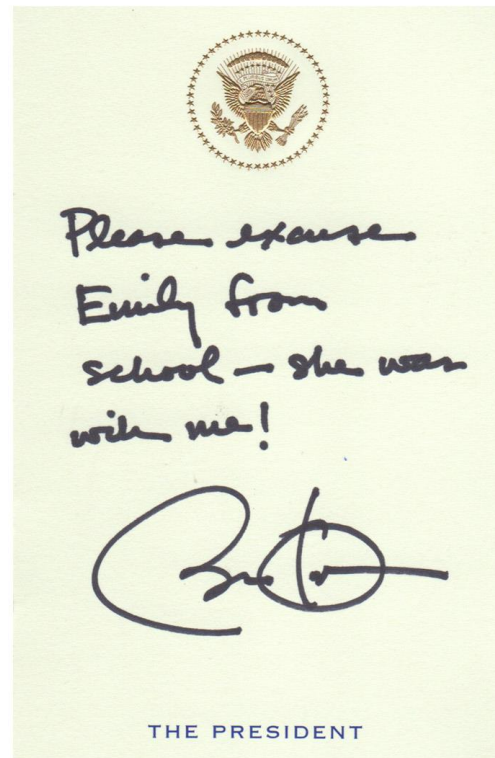 Please excuse
Emily from
school – she was
with me!
THE PRESIDENT